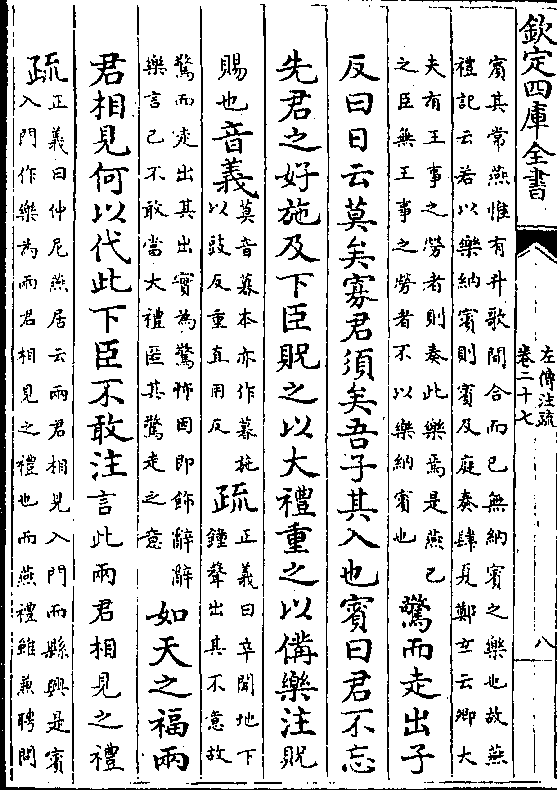 欽定四庫全書
左傳注疏
卷二十七
八
賓其常燕惟有升歌間合而已無納賓之樂也故燕
禮記云若以樂納賓則賓及庭奏肆夏鄭玄云卿大
夫有王事之勞者則奏此樂焉是燕己
之臣無王事之勞者不以樂納賓也
驚而走出子
反曰日云莫矣寡君須矣吾子其入也賓曰君不忘
先君之好施及下臣貺之以大禮重之以備樂注貺
賜也音義
莫音暮本亦作暮施
以豉反重直用反
疏
正義曰卒聞地下
鐘聲出其不意故
驚而走出其出實為驚怖因即飾辭辭
樂言己不敢當大禮匿其驚走之意
如天之福兩
君相見何以代此下臣不敢注言此兩君相見之禮
疏
正義曰仲尼燕居云兩君相見入門而縣興是賓
入門作樂為兩君相見之禮也而燕禮雖兼聘問